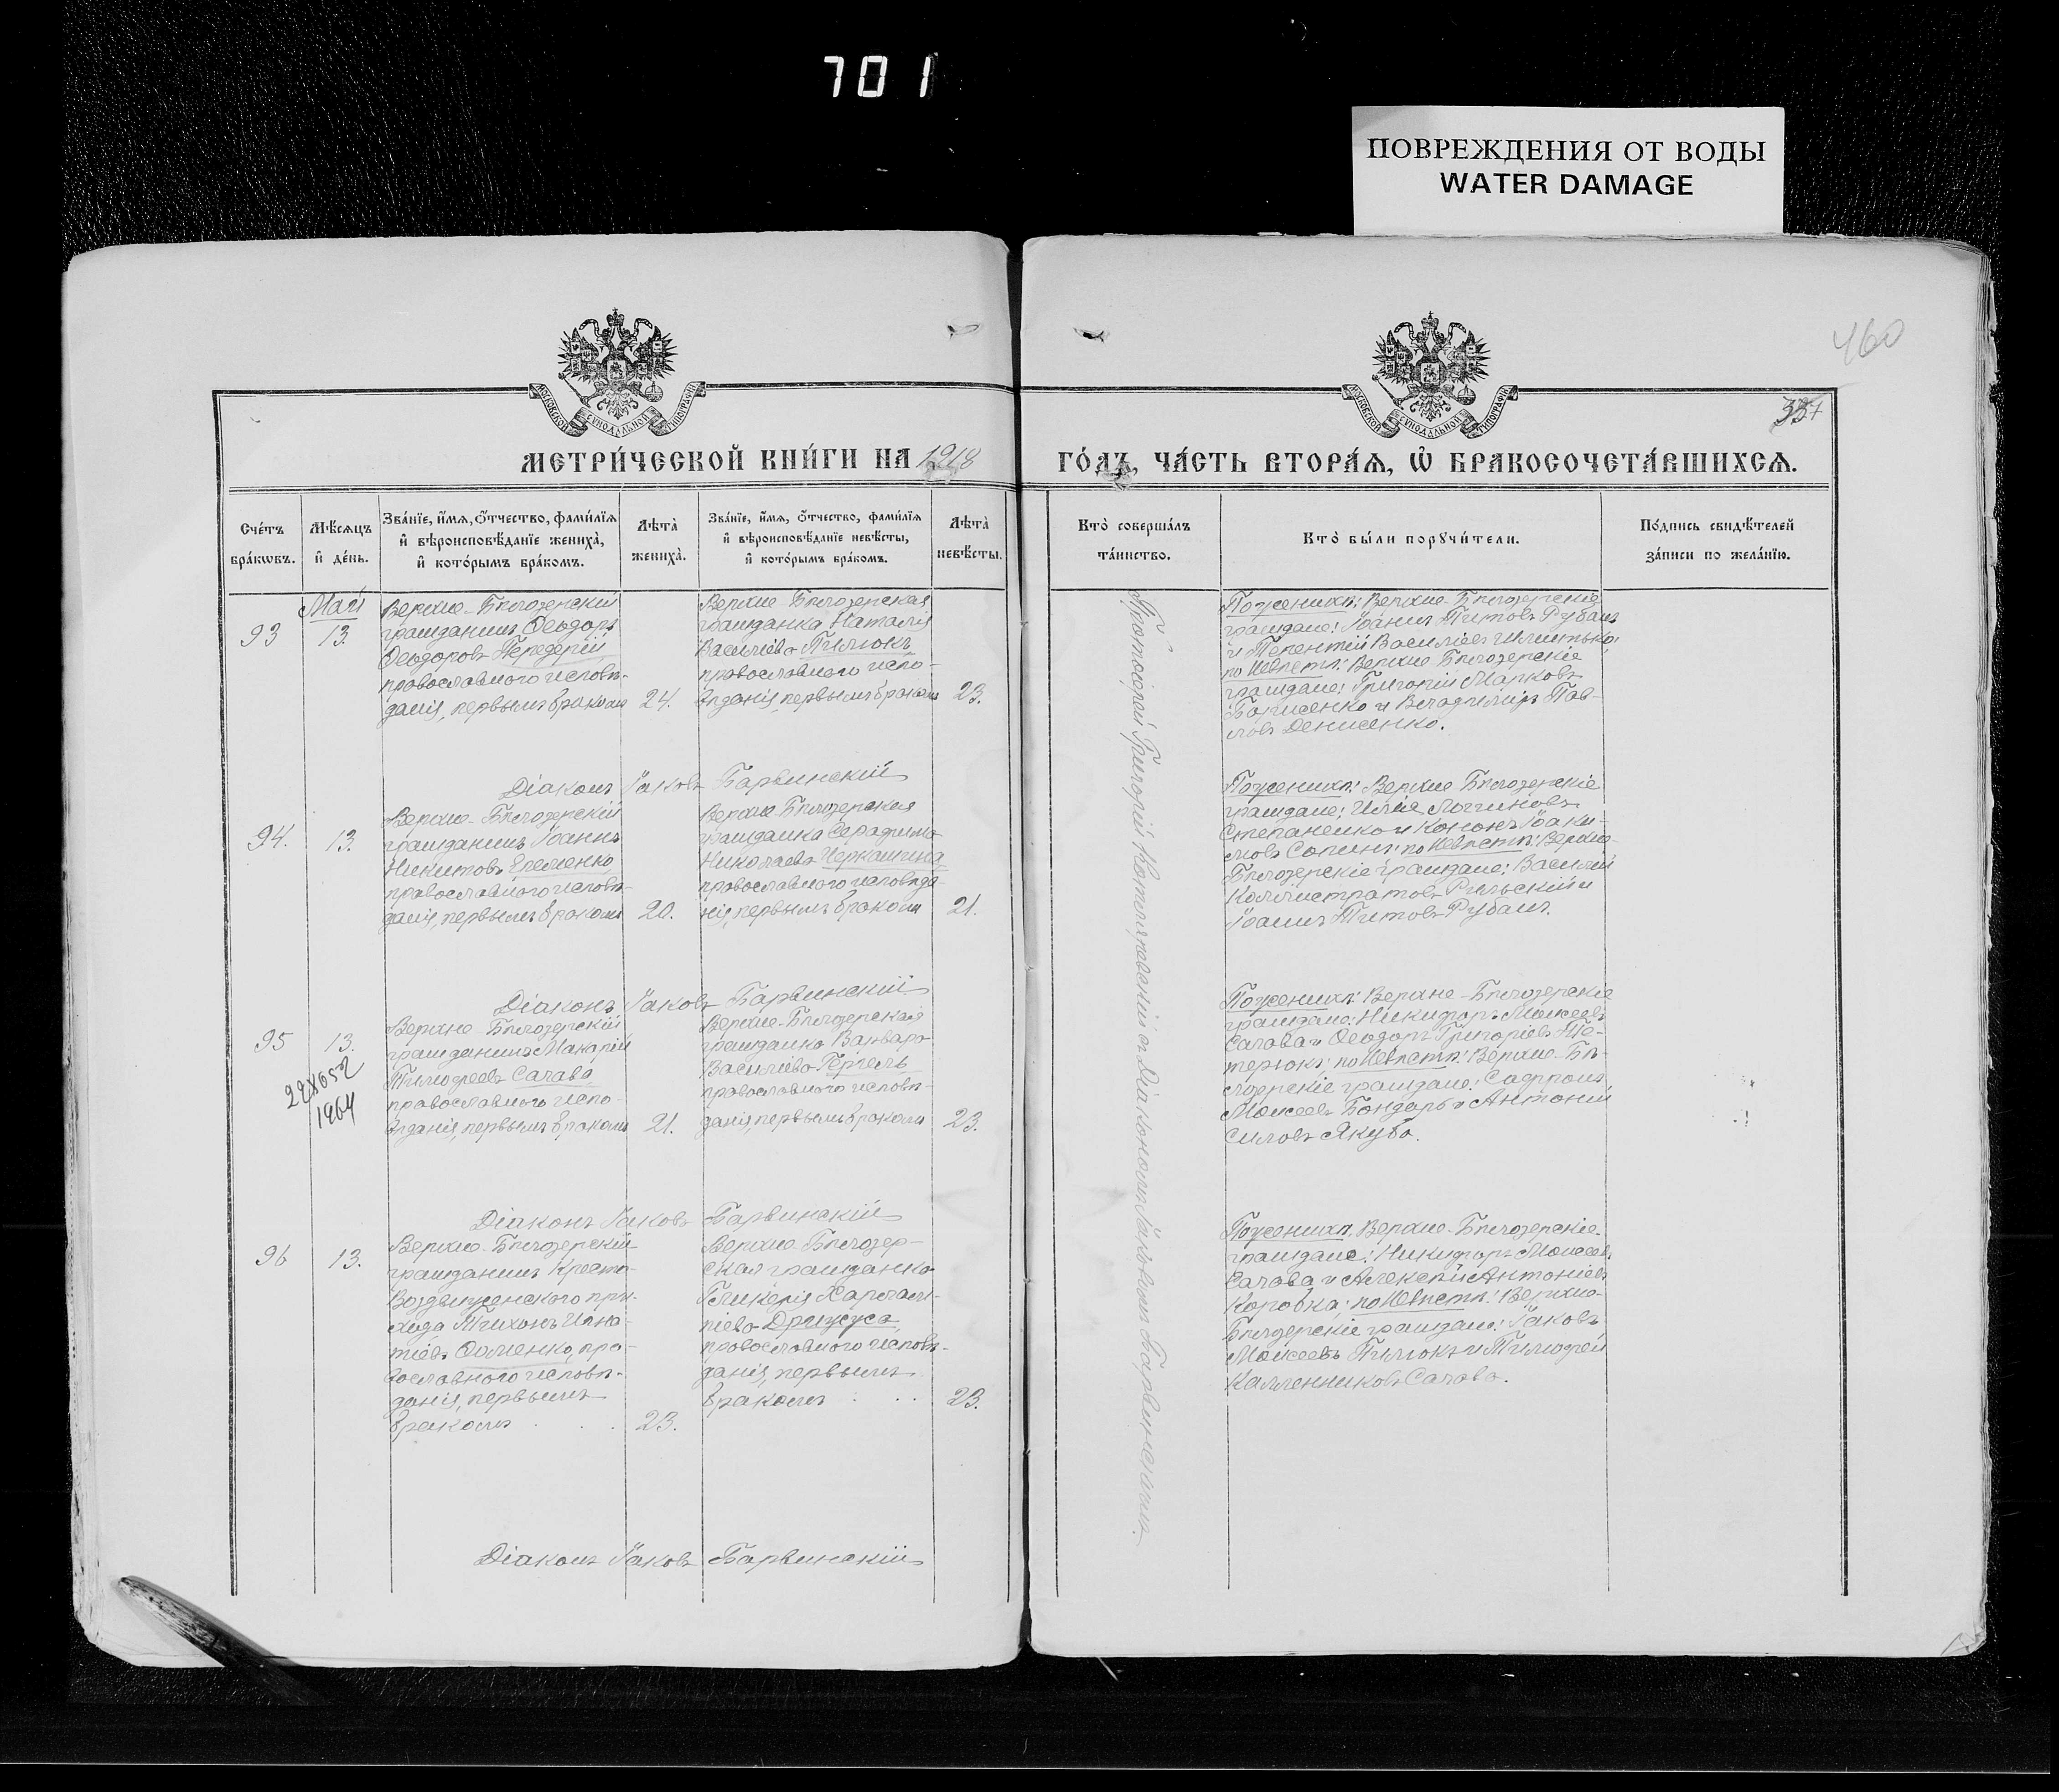 701
ПОВРЕЖДЕНИЯ ОТ ВОДЫ
WATER DAMAGE
460
МОСКОВСКОЙ СѴНОДАЛЬНОЙ ТИПОГРАФІИ
МОСКОВСКОЙ СѴНОДАЛЬНОЙ ТИПОГРАФІИ
337
МЕТРИ́ЧЕСКОЙ КНИ́ГИ НА 1918 ГО́ДЪ, ЧА́СТЬ ВТОРА́Я, Ѽ БРАКОСОЧЕТА́ВШИХСЯ.
Сче́тъ бра́кѡвъ.
Мѣ́сяцъ и҆ де́нь.
Зва́нїе, и҆́мя, ѻ҆́тчество, фами́лїя
и҆ вѣроисповѣ́данїе жениха̀,
и҆ кото́рымъ бра́комъ.
Лѣта̀ жениха̀.
Зва́нїе, и҆́мя, ѻ҆́тчество, фами́лїя
и҆ вѣроисповѣ́данїе невѣ́сты,
и҆ кото́рымъ бра́комъ.
Лѣта̀ невѣ́сты.
Кто̀ соверша́лъ та́инство.
Кто̀ бы́ли порꙋчи́тели.
По́дпись свидѣ́телей за́писи по жела́нїю.
Май
93
13.
Верхне-Бѣлозерскій
гражданинъ Ѳеодоръ
Ѳеодоровъ Передерій
православнаго исповѣ-
данія, первымъ бракомъ
24.
Верхне-Бѣлозерская
гражданка Наталія
Василіева Пилюкъ
православнаго испо-
вѣданія, первымъ бракомъ
23.
Протоіерей Григорій
съ Діакономъ Іаковомъ Барвинскимъ
По женихѣ: Верхне-Бѣлозерскіе
граждане: Іоаннъ Титовъ Рубанъ
и Терентій Василіевъ
по невѣстѣ: Верхне-Бѣлозерскіе
граждане: Григорій Марковъ
Борисенко и Владиміръ Пав-
ловъ Денисенко.
Діаконъ Іаковъ Барвинскій
94.
13.
Верхне-Бѣлозерскій
гражданинъ Іоаннъ
Никитовъ Еременко
православнаго исповѣ-
данія, первымъ бракомъ
20.
Верхне-Бѣлозерская
гражданка Серафима
Николаева Черкашина
православнаго исповѣда-
нія, первымъ бракомъ
21.
По женихѣ: Верхне Бѣлозерскіе
граждане: Илія Логгиновъ
Степаненко и Кононъ Іоаки-
мовъ Сопинъ; по невѣстѣ: Верхне-
Бѣлозерскіе граждане: Василій
Каллистратовъ Рильскій и
Іоаннъ Титовъ Рубанъ.
Діаконъ Іаковъ Барвинскій
95
13.
1964
Верхне-Бѣлозерскій
гражданинъ Макарій
Тимофеевъ Салава
православнаго испо-
вѣданія, первымъ бракомъ
21.
Верхне-Бѣлозерская
гражданка Варвара
Василіева Гергель
православнаго исповѣ-
данія, первымъ бракомъ
23.
По женихѣ: Верхне-Бѣлозерскіе
граждане: Никифоръ Моисеевъ
Салава и Ѳеодоръ Григоріевъ Те-
терюкъ; по невѣстѣ: Верхне-Бѣ-
лозерскіе граждане: Софронъ
Моисеевъ Бондарь и Антоній
Силовъ Якуба.
Діаконъ Іаковъ Барвинскій
96
13.
Верхне-Бѣлозерскій
гражданинъ Кресто-
Воздвиженскаго при-
хода Тихонъ Игна-
тіевъ Ѳоменко, пра-
вославнаго исповѣ-
данія, первымъ
бракомъ
23.
Верхне-Бѣлозер-
ская гражданка
Гликерія Харлам-
піева Дрижуса
православнаго исповѣ-
данія, первымъ
бракомъ
23.
По женихѣ: Верхне-Бѣлозерскіе
граждане: Никифоръ Моисеевъ
Салава и Алексѣй Антоніевъ
Коровка; по невѣстѣ: Верхне-
Бѣлозерскіе граждане: Іаковъ
Моисеевъ Пилюкъ и Тимофей
Каллениковъ Салава.
Діаконъ Іаковъ Барвинскій